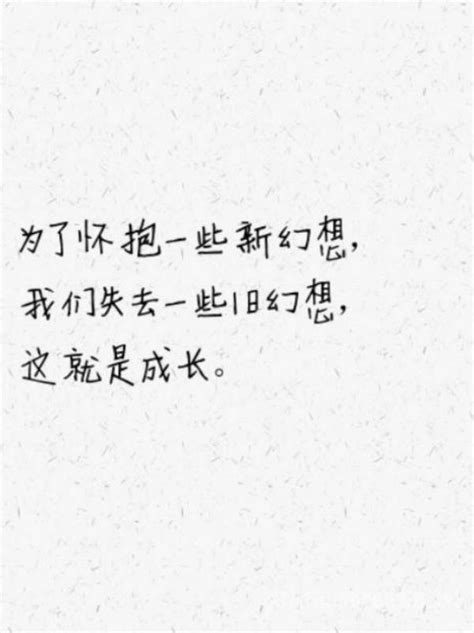 为了怀抱一些新幻想，
我们失去一些旧幻想，
这就是成长。